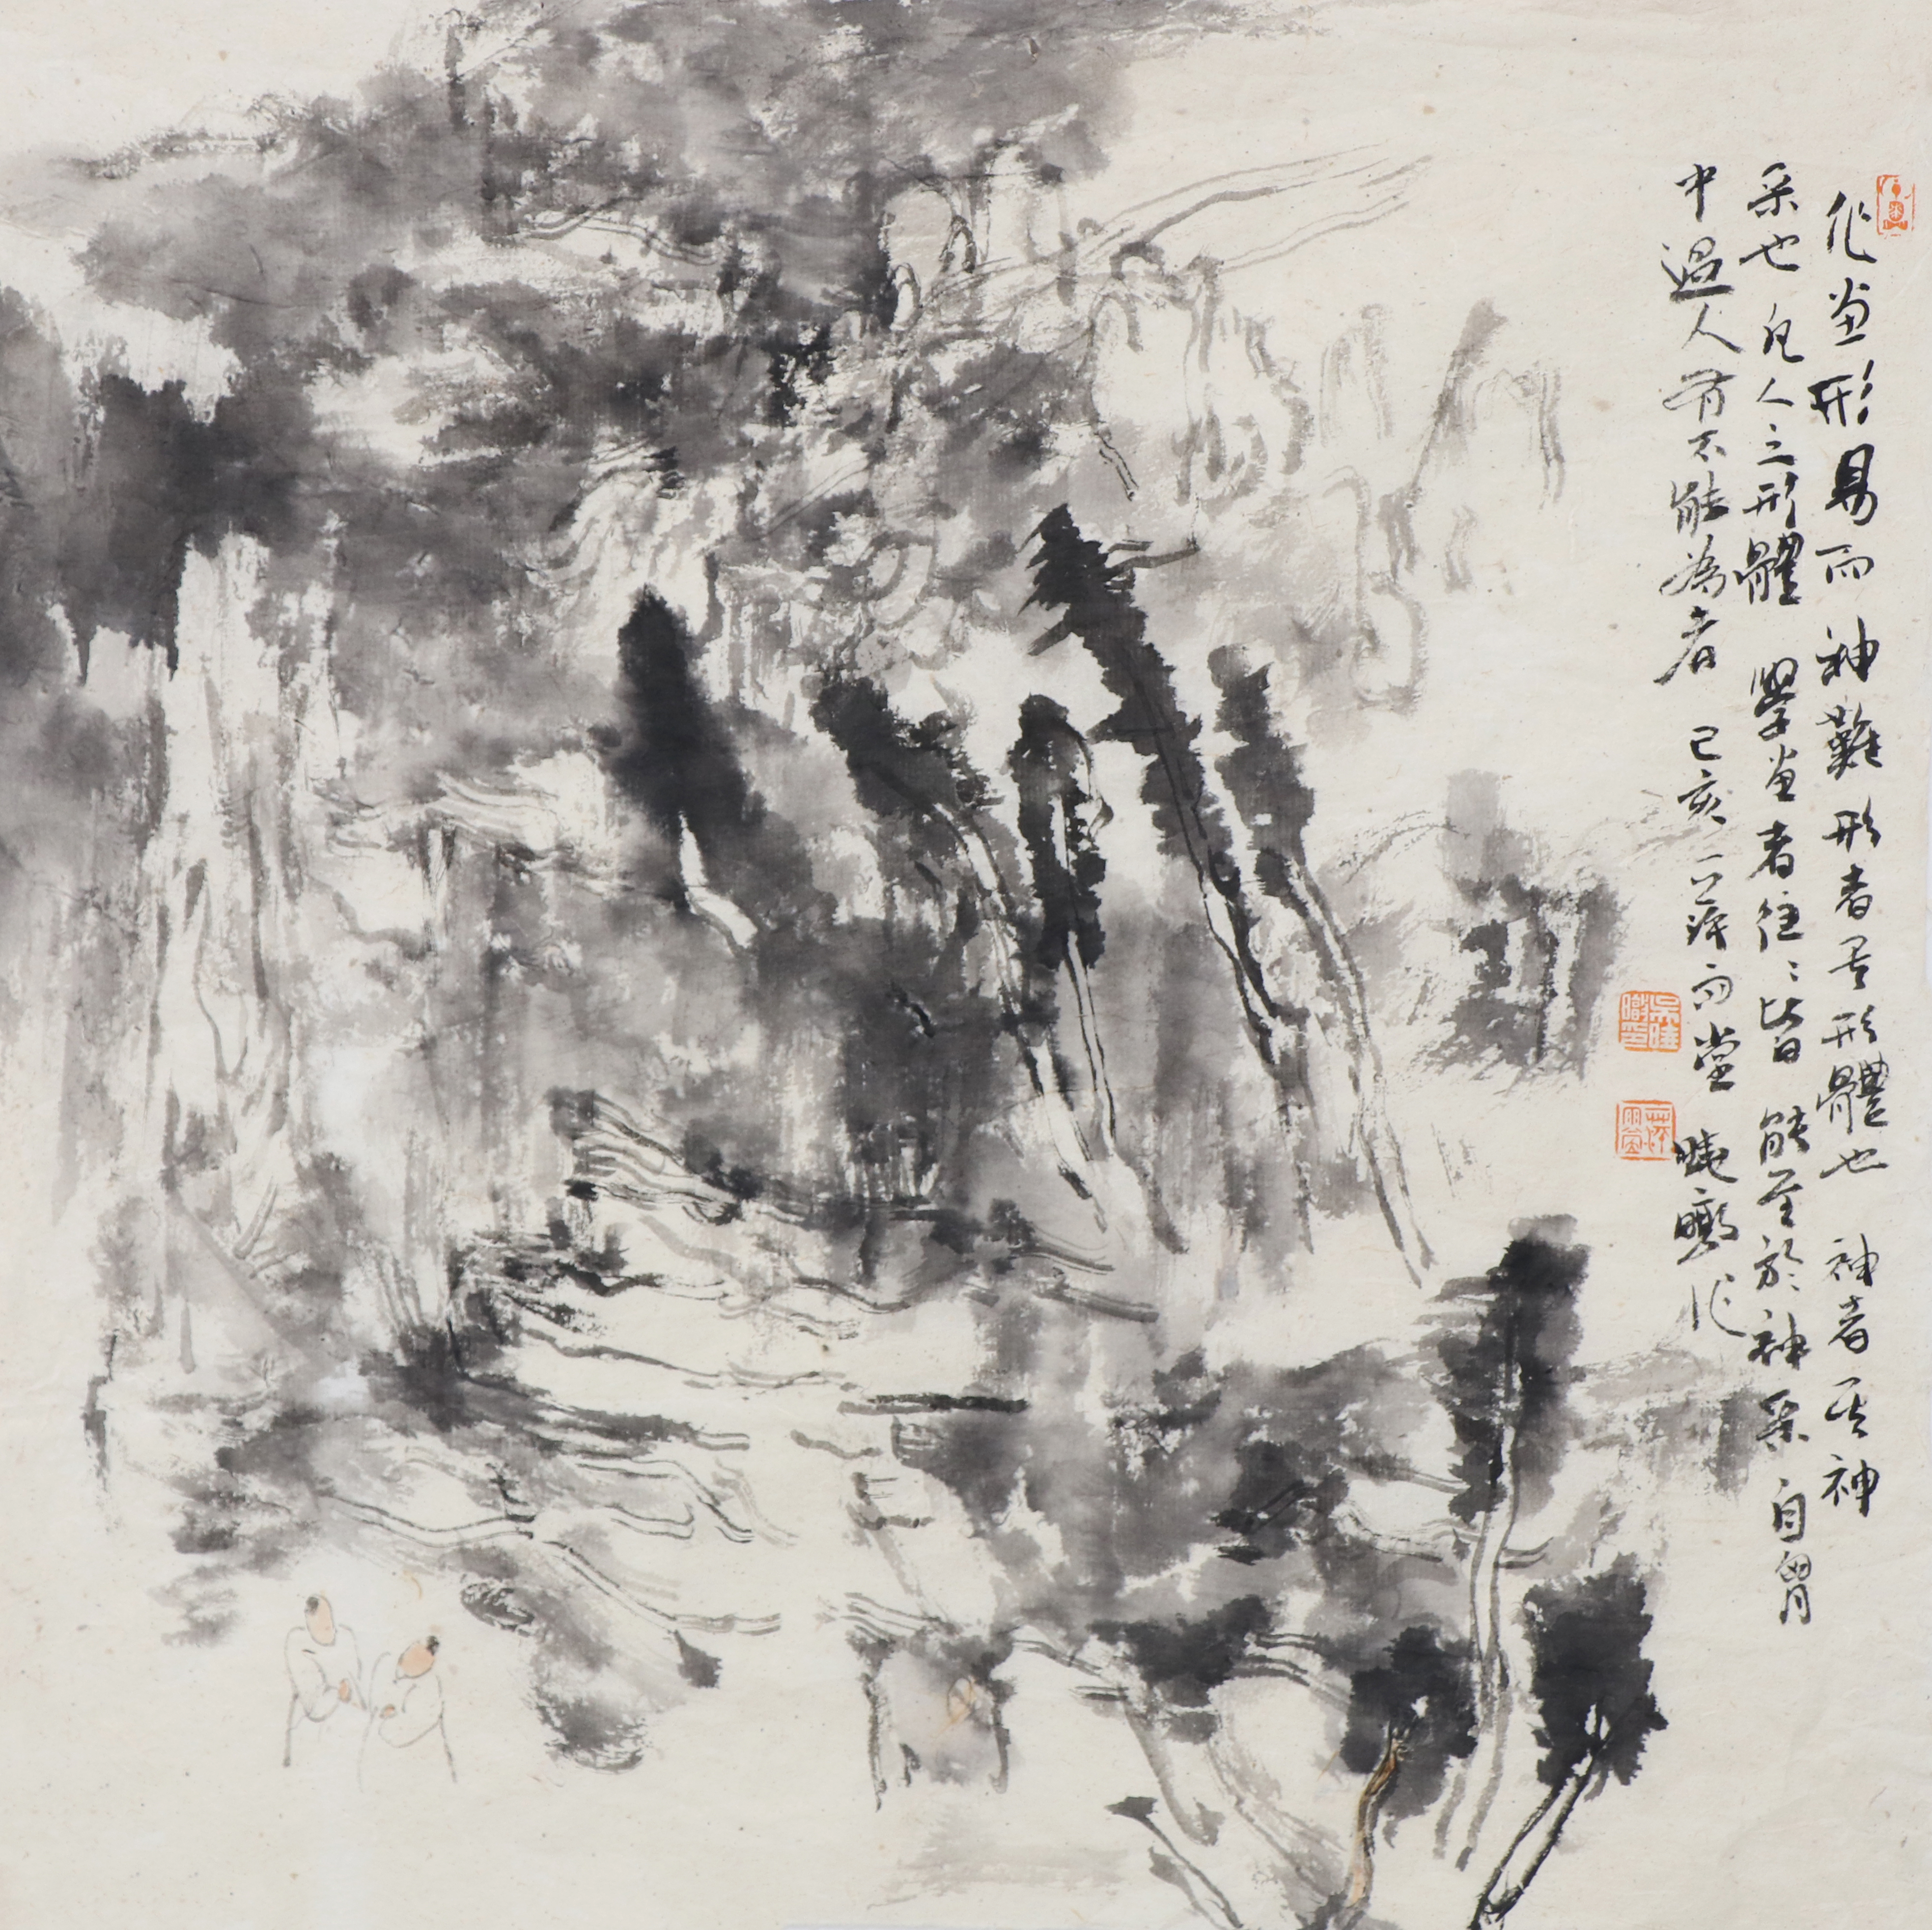 作画形易而神難形者其形體也神者其神
采也凡人之形體學画者往〻皆能至於神采自胷
中過人有不能為者 己亥 雨堂 曉 作